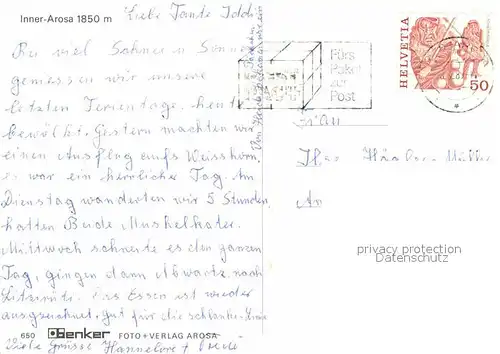 Inner-Arosa 1850 m
Liebe Tante Joldi
Bei viel Sahne u Sonne
geniessen wir unsere
letzten Ferientage, heute
bewölkt. Gestern machten wir
einen Ausflug aufs Weisshorn,
es war ein herrlicher Tag. Am
Dienstag wanderten wir 5 Stunden
hatten Beide Muskelkater.
Mittwoch schneite es den ganzen
Tag, gingen dann Abwärts nach
Litzirüti. Das Essen ist wieder
ausgezeichnet, gut für die schlanke Linie
Viele Grüsse Hannelore +
650 Denker FOTO + VERLAG AROSA
Fürs
Paket
zur
Post
HELVETIA
50
Frau
privacy protection
DATENSCHUTZ
An